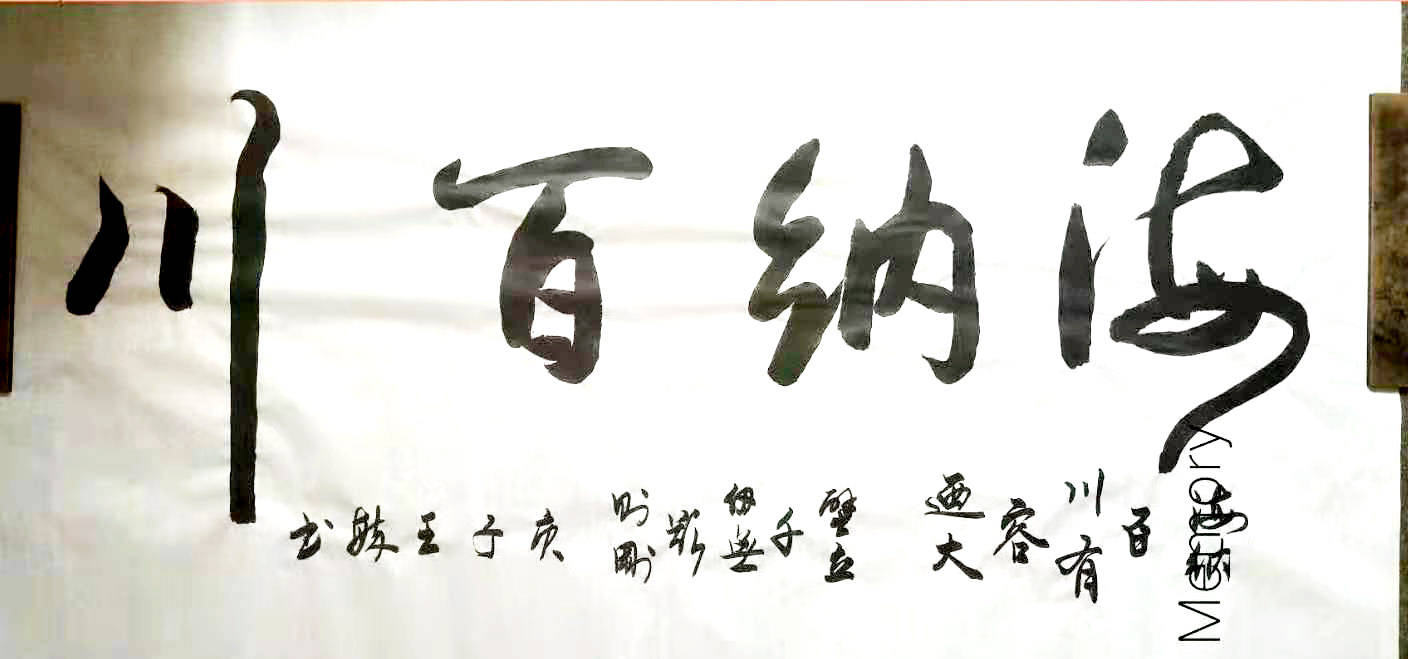 海纳百川
海纳百川有容迺大壁立千仞無欲則剛
庚子王书
Memory